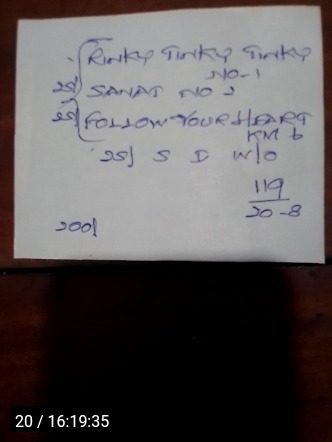 RINKY TINKY TINKY
NO-1
25/ SANAT NO 2
25/ FOLLOW YOUR HEART
KM 6
25/ S D W/O
119
20-8
200/
20 / 16:19:35